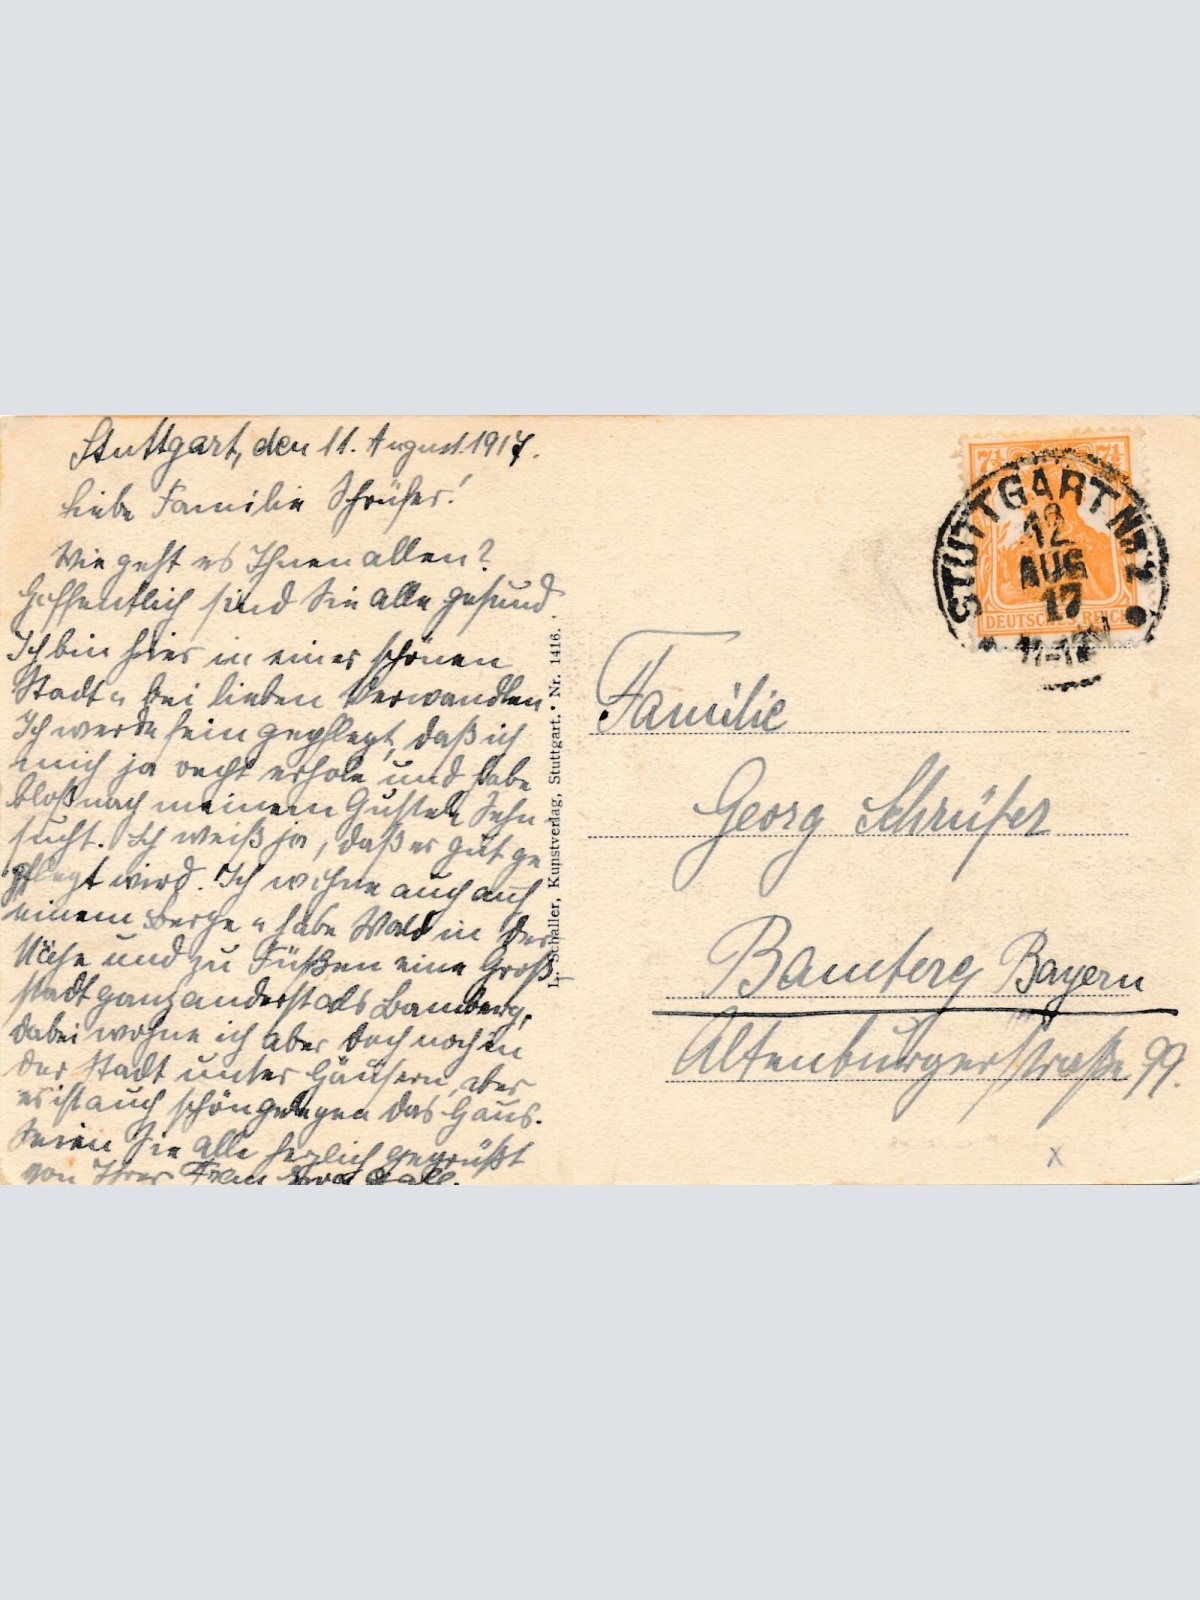 Stuttgart, den 11. August 1917.
Liebe Familie Schrüfer!
Wie geht es Ihnen allen?
Hoffentlich sind Sie alle gesund
Ich bin hier in einer schönen
Stadt u bei lieben Verwandten
Ich werde fein gepflegt, daß ich
mich ja recht erhole und habe
bloß nach meinem Gustel Sehn-
sucht. Ich weiß ja, daß er gut ge
pflegt wird. Ich wohne auch auf
einem Berge u habe Wald in der
Nähe und zu Füßen eine Groß-
stadt ganz anderst als Bamberg,
dabei wohne ich aber doch noch in
der Stadt unter Häusern, aber
es ist auch schön gelegen das Haus.
Seien Sie alle herzlich gegrüßt
von Ihrer Frau
L. Schaller, Kunstverlag, Stuttgart. • Nr. 1416.
7½ 7½
DEUTSCHES REICH
STUTTGART Nr. 2
12
AUG
17
11-12 N
Familie
Georg Schrüfer
Bamberg Bayern
Altenburgerstraße 99.
x